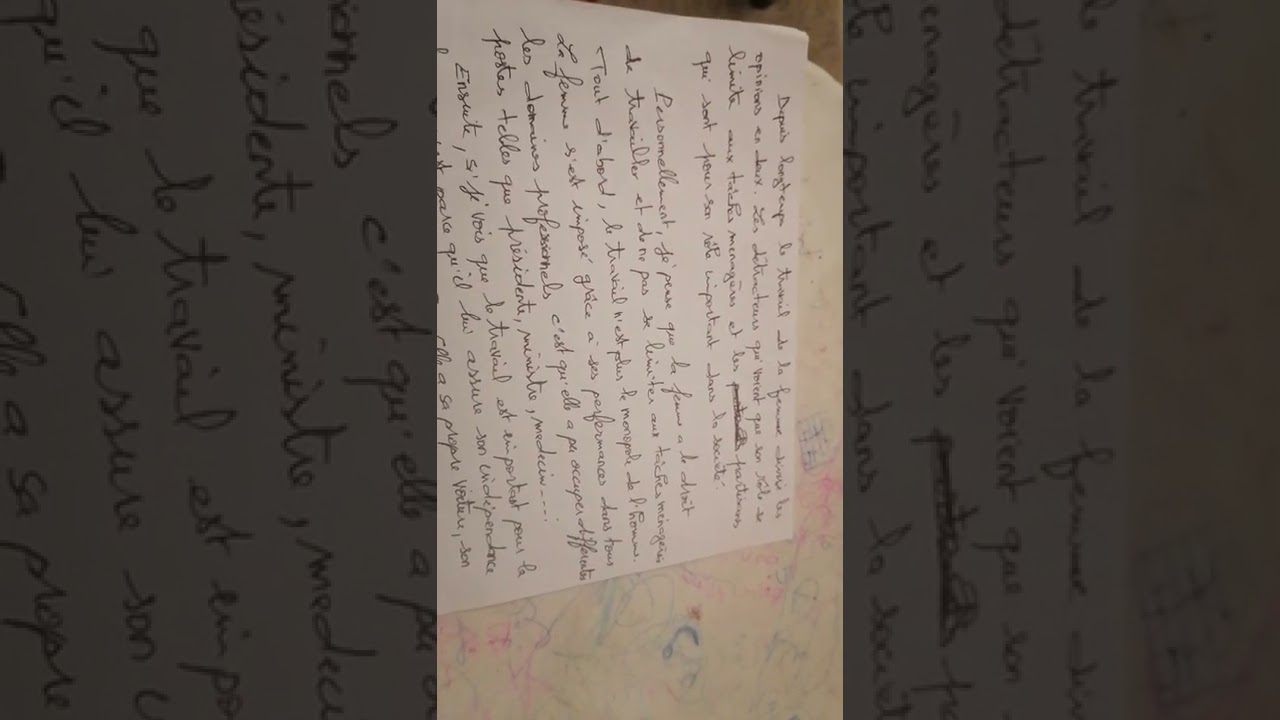 Depuis longtemps le travail de la femme divise les
opinions en deux. Les détracteurs qui voient que son rôle se
limite aux tâches menagères et les partisans
qui sont pour son rôle important dans la société.
Personnellement je pense que la femme a le droit
de travailler et de ne pas se limiter aux tâches ménagères
Tout d'abord, le travail n'est plus le monopole de l'homme.
La femme s'est imposé grâce à ses performances dans tous
les domaines professionnels c'est qu'elle a pu occuper différentes
postes telles que présidente, ministre, medecin....
Ensuite, si je vois que le travail est important pour la
c'est parce qu'il lui assure son indépendance
Elle a sa propre voiture, son